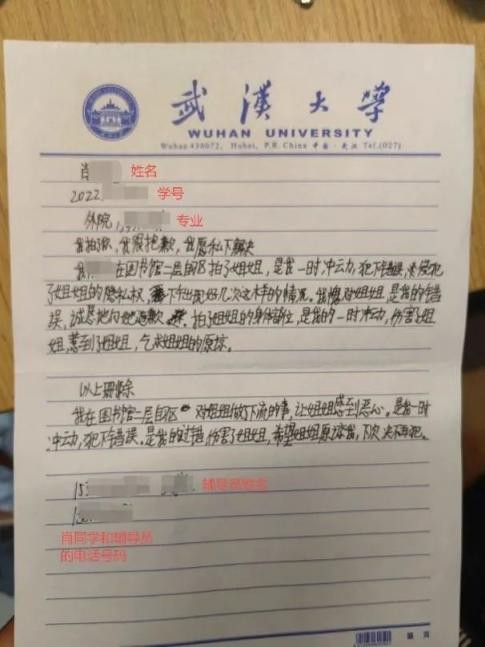 武漢大學
WUHAN UNIVERSITY
Wuhan 430072, Hubei, P.R. China 中国·武汉 Tel.(027)
肖 姓名
2022 学号
外院 专业
我拍了, 我很抱歉, 我愿私下解决
我 在图书馆二层自区拍了姐姐, 是我一时冲动, 犯下错误, 侵犯
了姐姐的隐私权, 下午出现好几次这样的情况。我愧对姐姐, 是我的错
误, 诚恳地向她道歉 拍了姐姐的身体部位, 是我的一时冲动, 伤害了姐
姐, 惹到了姐姐, 乞求姐姐的原谅。
以上删除
我在图书馆二层自区 对姐姐做了下流的事, 让姐姐感到恶心。是我一时
冲动, 犯下错误。是我的过错, 伤害了姐姐, 希望姐姐原谅我, 下次决不再犯。
15 辅导员姓名
肖同学和辅导员
的电话号码
第 页